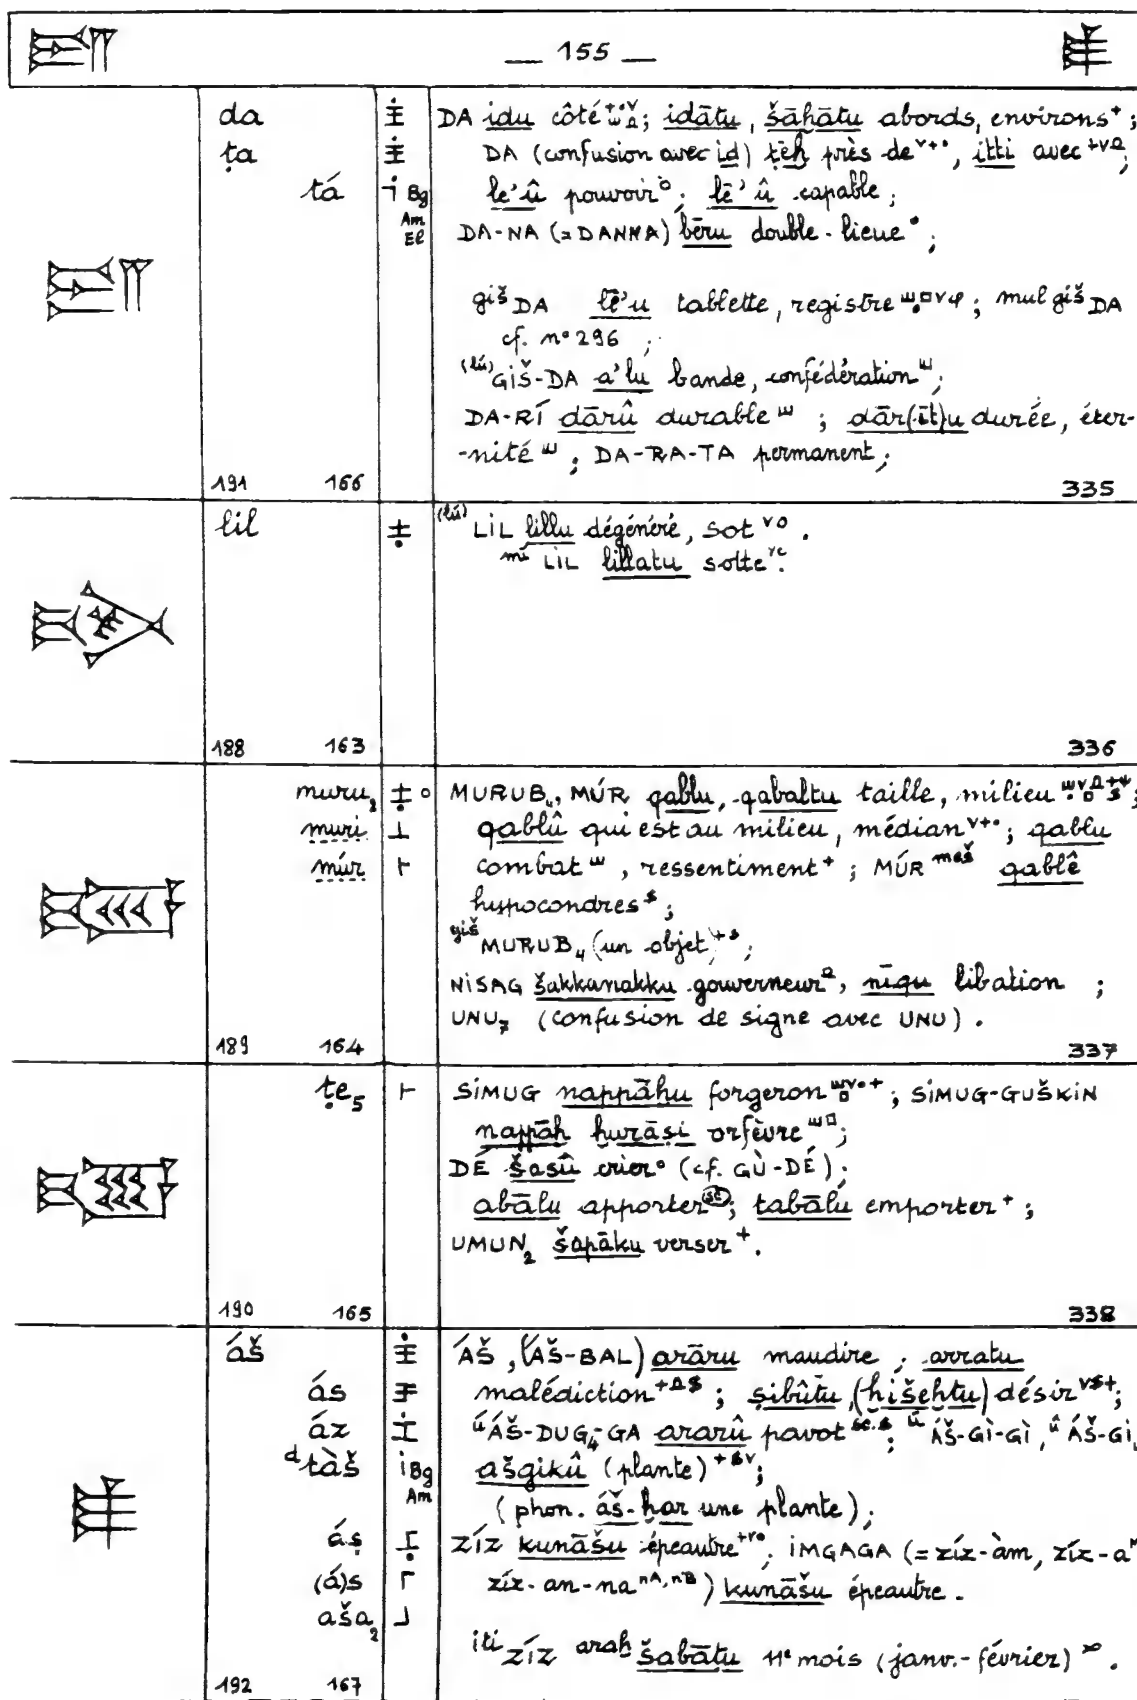 — 155 —
da DA idu côté ; idātu, šāḫātu abords, environs⁺ ;
ṭa DA (confusion avec id) ṭēḫ près de ᵛ⁺°, itti avec ;
tá Bg le'û pouvoir° ; lē'û capable ;
Am
El DA-NA (=DANNA) bēru double-lieue ;
giš DA lē'u tablette, registre ; mul giš DA
cf. n° 296 ;
(lú) GIŠ-DA a'lu bande, confédération ;
DA-RÍ dārû durable ; dār(īt)u durée, éter-
-nité ; DA-RA-TA permanent ;
191 166 335
lil (lú) LIL lillu dégénéré, sot ᵛ° .
mí LIL lillatu sotte .
188 163 336
muru₂ MURUB₄, MÚR qablu, qabaltu taille, milieu ;
muri qablû qui est au milieu, médian ᵛ⁺° ; qablu
múr combat , ressentiment⁺ ; MÚR meš qablê
hypocondres ;
giš MURUB₄ (un objet) ;
NISAG šakkanakku gouverneur, nīqu libation ;
UNU₇ (confusion de signe avec UNU) .
189 164 337
ṭe₅ SIMUG nappāḫu forgeron ; SIMUG-GUŠKIN
nappāḫ ḫurāṣi orfèvre ;
DÉ šasû crier° (cf. GÙ-DÉ) ;
abālu apporter ; tabālu emporter⁺ ;
UMUN₂ šapāku verser⁺ .
190 165 338
áš ÁŠ, (ÁŠ-BAL) arāru maudire ; arratu
ás malédiction ; ṣibûtu, (ḫišeḫtu) désir ;
áz ú ÁŠ-DUG₄-GA ararû pavot ; ú ÁŠ-GÌ-GÌ, ú ÁŠ-GÌ,
d tàš Bg ašgikû (plante) ;
Am (phon. áš-ḫar une plante) ;
áṣ ZÍZ kunāšu épeautre ; IMGAGA (= zíz-àm, zíz-a
(á)s zíz-an-na ⁿᴬ,ⁿᴮ) kunāšu épeautre .
aša₂
iti ZÍZ araḫ šabāṭu 11ᵉ mois (janv.-février) .
192 167